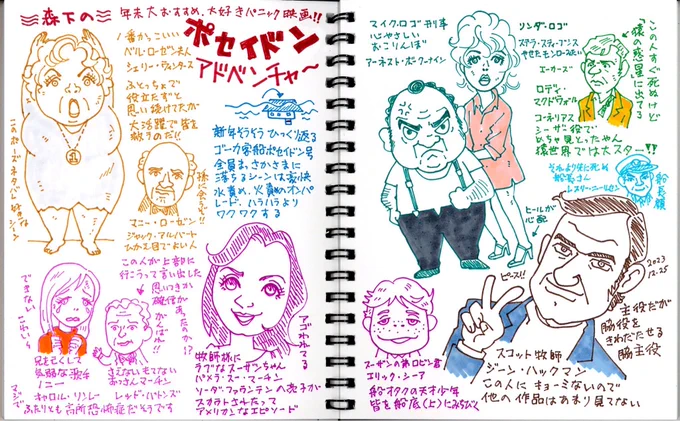 森下の
年末大おすすめ、大好きパニック映画!!
ポセイドン
アドベンチャ〜
1番かっこいい
ベル・ローゼン夫人
シェリー・ウィンタース
ふとっちょで
役立たずと
思い続けてたが
大活躍で皆を
救うのだ!!
このポーズ、ネタバレ
新年そうそう ひっくり返る
ゴーカ客船ポセイドン号
全員まっさかさまに
落ちるシーンは豪快
水責め、火責めのオンパ
レード、ハラハラより
ワクワクする
孫に会うぞ!!
マニー・ローゼン
ジャック・アルバートソン
ひかえ目でよい人
この人が上部に
行こうって言い出した
思いつきか
確信が
あったか!?
できない
こわい
兄を亡くした
気弱な歌手
ノニー
キャロル・リンレー
さえない、もてない
おっさんマーチン
レッド・バトンズ
マジで
ふたりとも高所恐怖症だそうです
アゴわれてる
牧師様に
ラブなスーザンちゃん
パメラ・スー・マーチン
ソーダファウンテンへの
スカウトされたって
アメリカンなエピソード
マイク・ロゴ刑事
心やさしい
おこりんぼ
アーネスト・ボーグナイン
リンダ・ロゴ
ステラ・スティーブンス
やせたモンローみたい
この人すぐ死ぬけど
「猿の惑星」に出てる
エーカーズ
ロディ・
マクドウォール
コーネリアス
シーザー役で
めちゃ見とったやん
猿世界では大スター!!
それより先に死ぬ
船長さん
レスリー・ニールセン
船長帽
ヒールが
心配
ピース!!
2023
12.25
スーザンの弟ロビン君
エリック・シーア
船オタクの天才少年
皆を船底(上)にみちびく
主役だが
脇役を
きわだたせる
脇主役
スコット牧師
ジーン・ハックマン
この人にキョーミないので
他の作品はあまり見てない